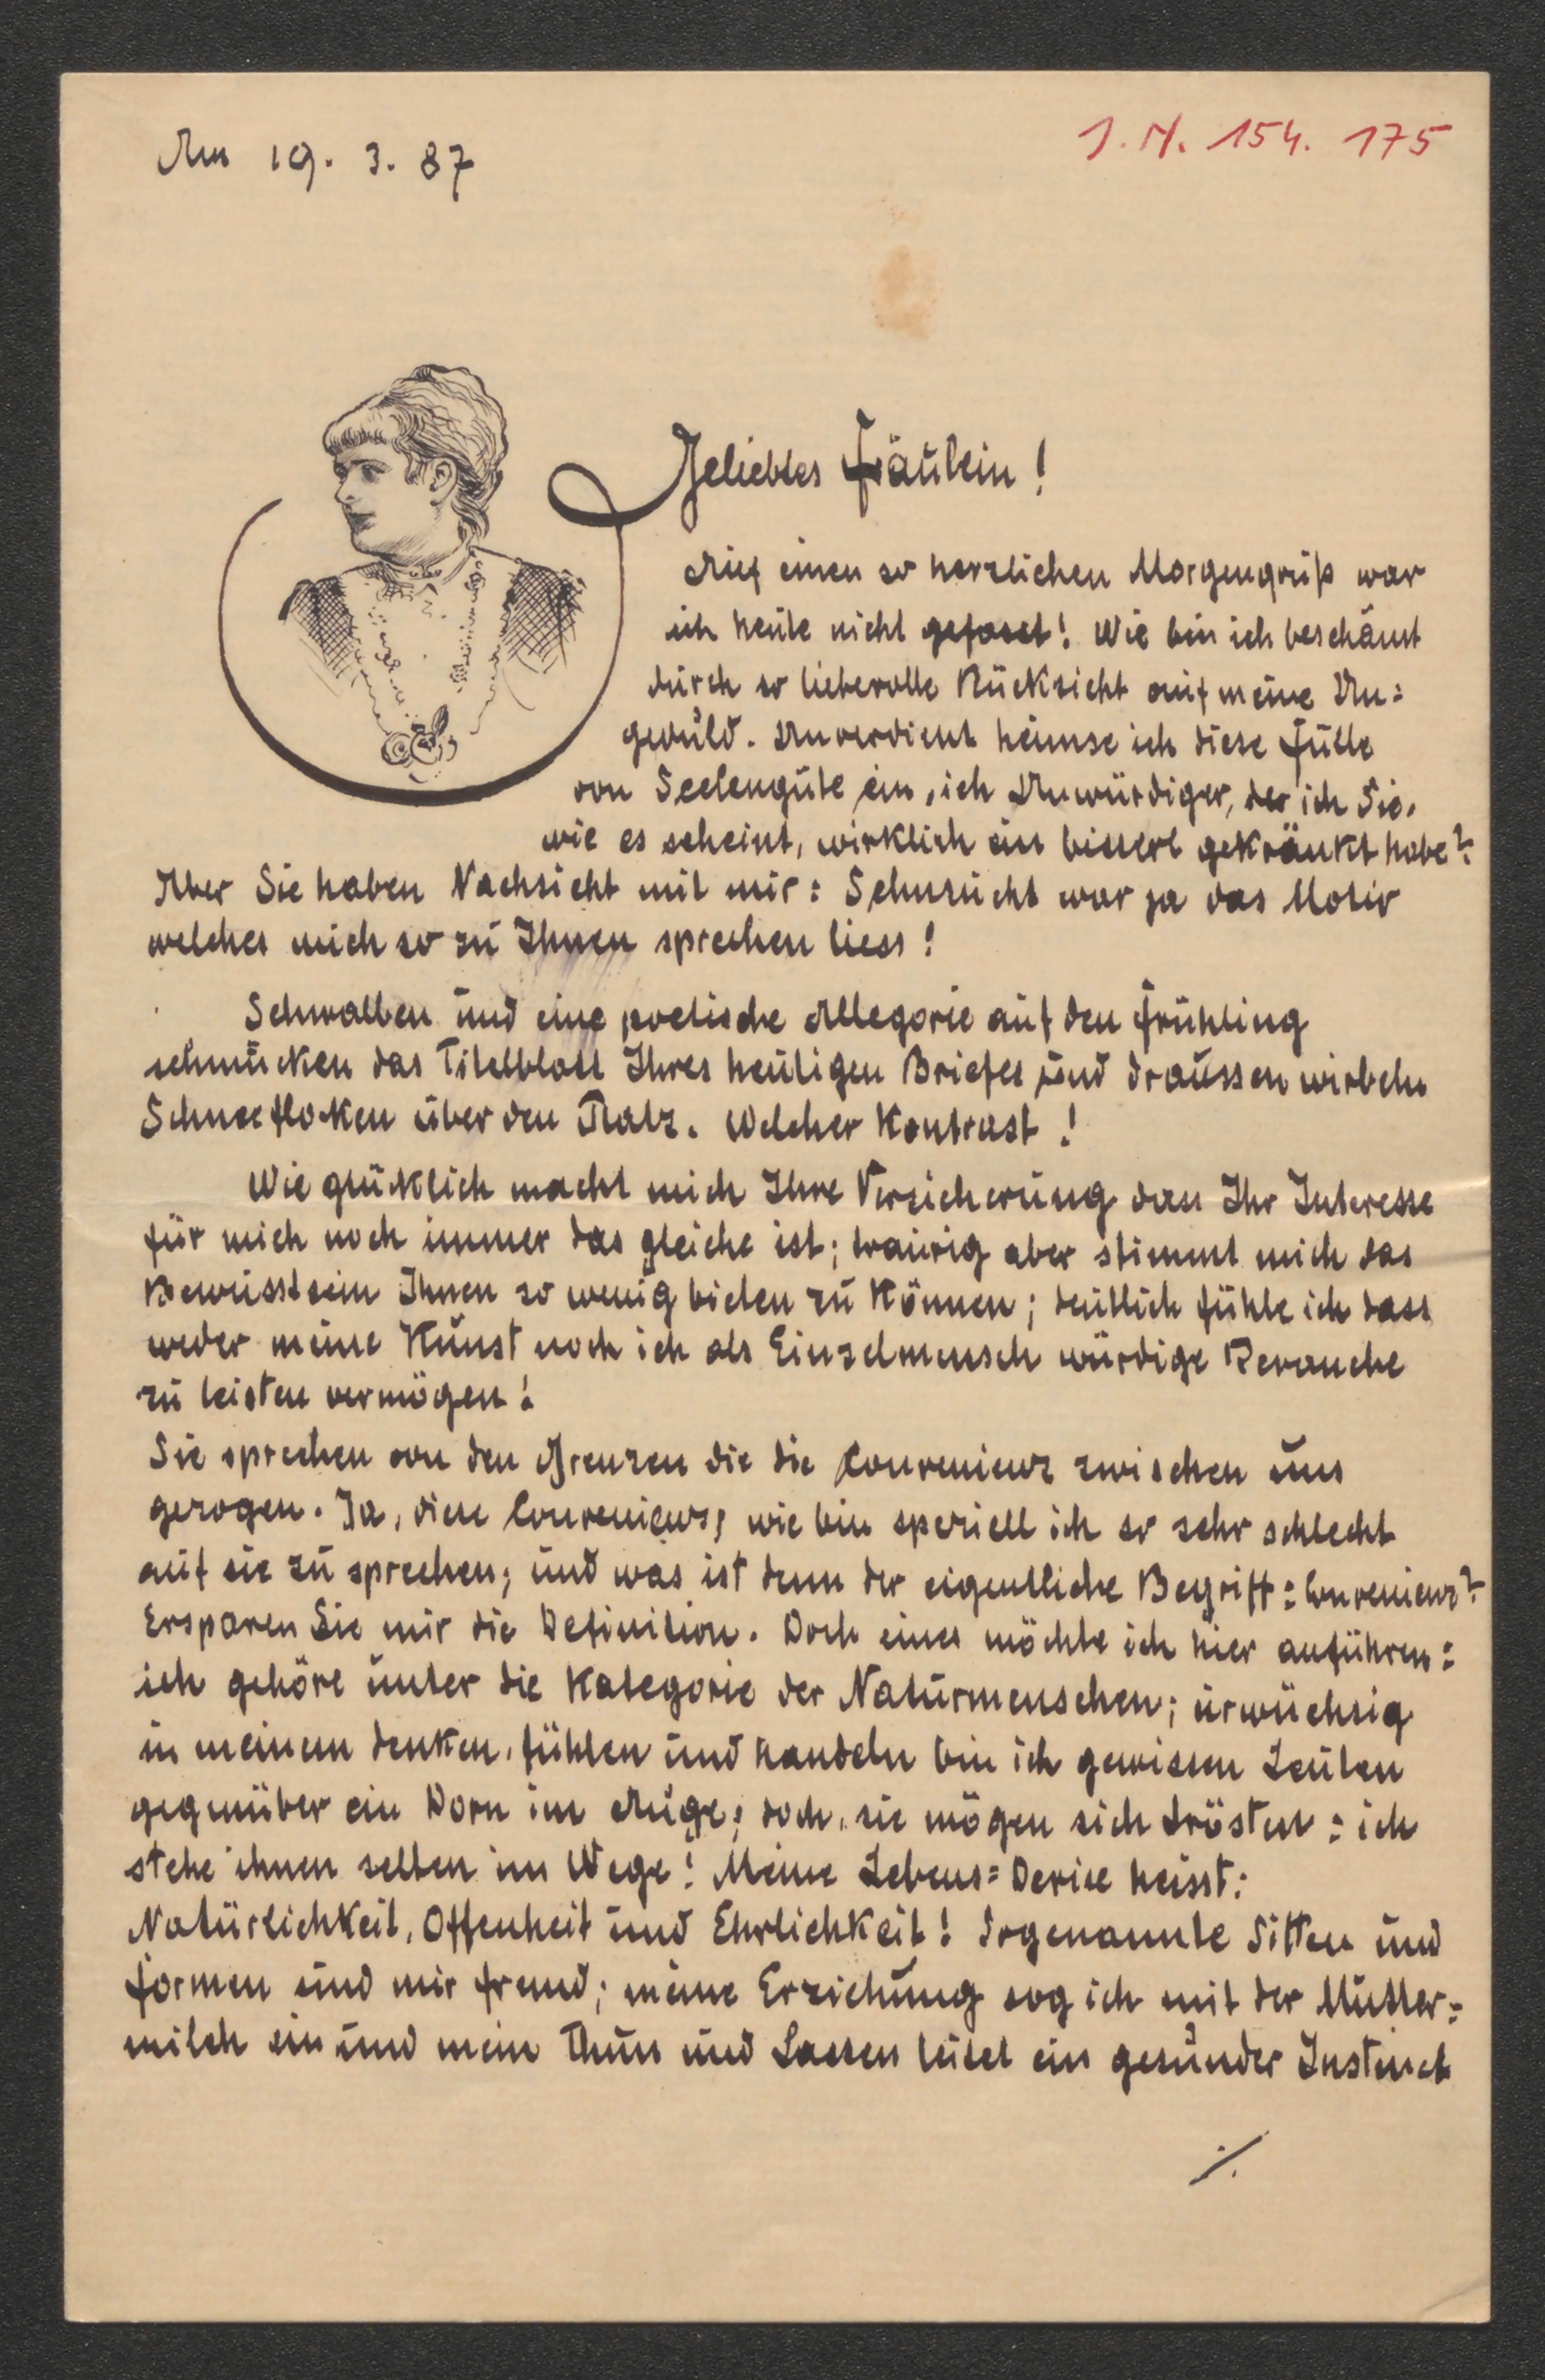 Am 19. 3. 87
J. N. 154. 175
Geliebtes Fräulein!
Auf einen so herzlichen Morgengruß war
ich heute nicht gefasst! Wie bin ich beschämt
durch so liebevolle Rücksicht auf meine Un=
geduld. Unverdient heimse ich diese Fülle
von Seelengüte ein, ich Unwürdiger, der ich Sie,
wie es scheint, wirklich ein bisserl gekränkt habe?
Aber Sie haben Nachsicht mit mir: Sehnsucht war ja das Motiv
welches mich so zu Ihnen sprechen liess!
Schwalben und eine poetische Allegorie auf den Frühling
schmücken das Titelblatt Ihres heutigen Briefes und draussen wirbeln
Schneeflocken über den Platz. Welcher Kontrast!
Wie glücklich macht mich Ihre Versicherung dass Ihr Interesse
für mich noch immer das gleiche ist; traurig aber stimmt mich das
Bewusstsein Ihnen so wenig bieten zu können; deutlich fühle ich dass
weder meine Kunst noch ich als Einzelmensch würdige Revanche
zu leisten vermögen!
Sie sprechen von den Grenzen die die Convenienz zwischen uns
gezogen. Ja, diese Convenienz, wie bin speziell ich so sehr schlecht
auf sie zu sprechen; und was ist denn der eigentliche Begriff: Convenienz?
Ersparen Sie mir die Definition. Doch eines möchte ich hier anführen:
ich gehöre unter die Kategorie der Naturmenschen; urwüchsig
in meinem denken, fühlen und handeln bin ich gewissen Leuten
gegenüber ein Dorn im Auge; doch, sie mögen sich trösten: ich
stehe ihnen selten im Wege! Meine Lebens=Devise heisst:
Natürlichkeit, Offenheit und Ehrlichkeit! Sogenannte Sitten und
Formen sind mir fremd; meine Erziehung sog ich mit der Mutter=
milch ein und mein Thun und Lassen leitet ein gesunder Instinct
./.